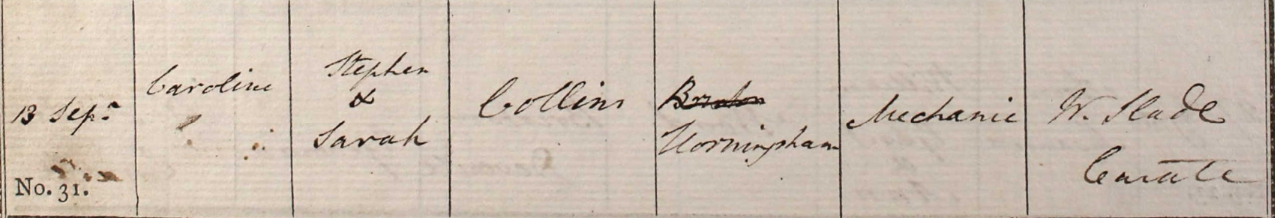 13 Sepr
No. 31.
Caroline
Stephen
&
Sarah
Collins
Horningham
Mechanic
W. Slade
Curate